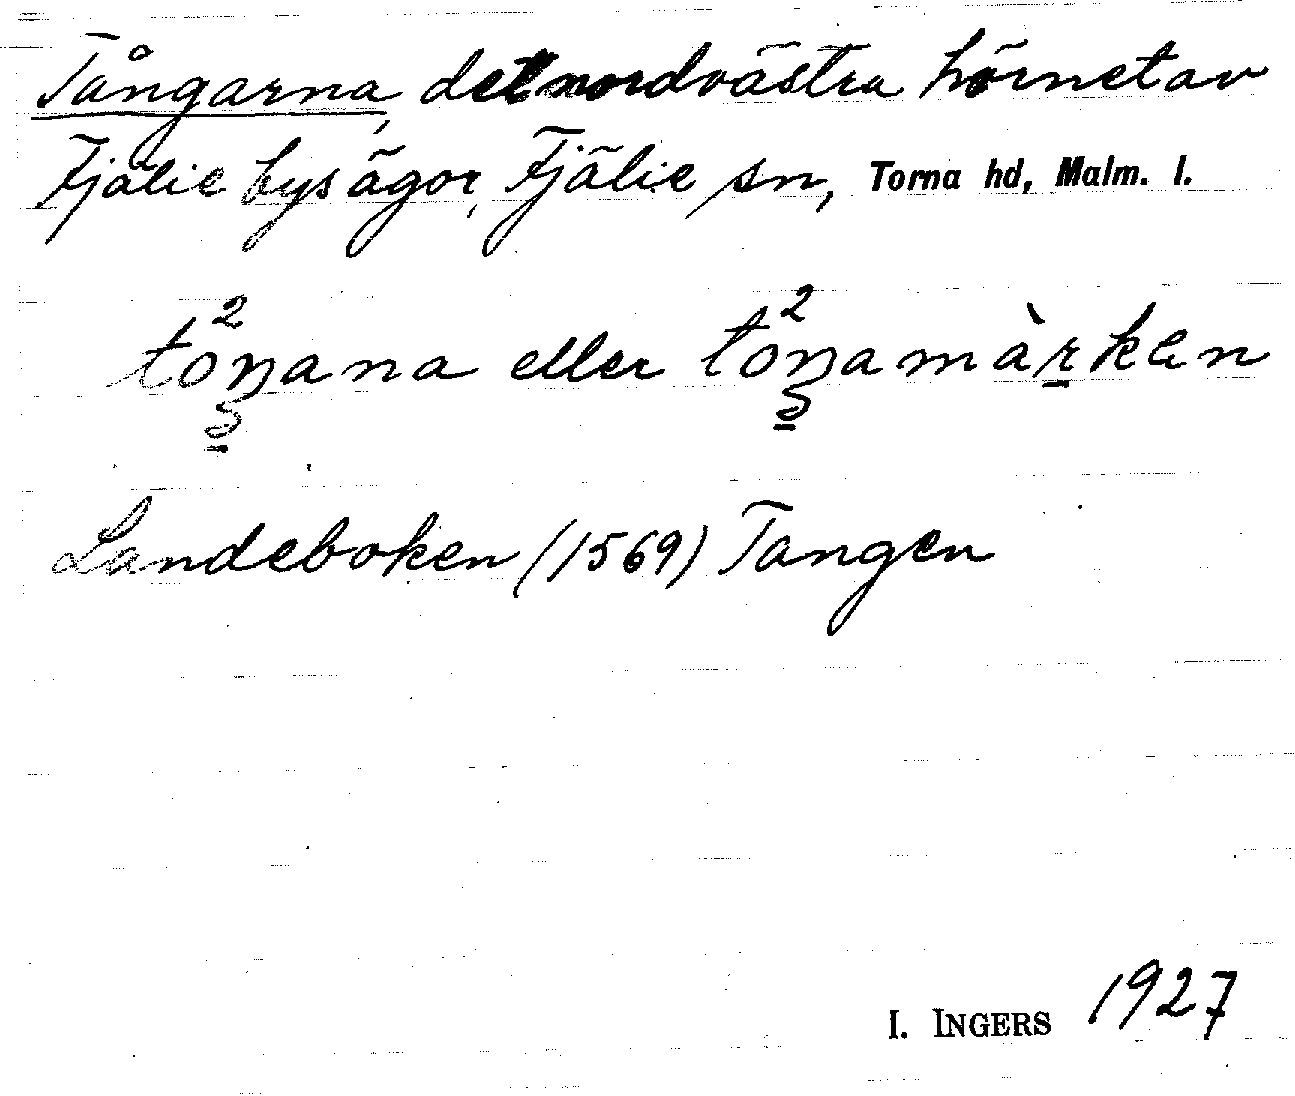 Tångarna, det nordvästra hörnet av
Fjälie bys ägor, Fjälie sn, Torna hd, Malm. l.
to²ŋana eller to²ŋamàrken
Landeboken (1569) Tangen
I. INGERS 1927